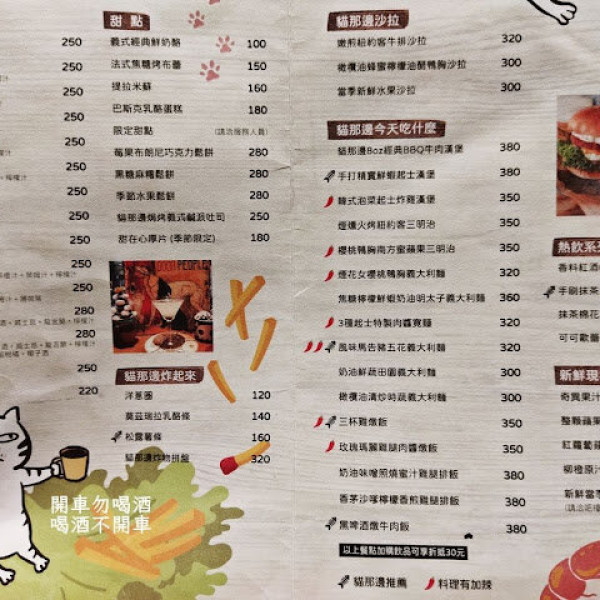 250
250
250
250
250
250
250
250
250
280
280
250
220
甜 點
義式經典鮮奶酪 100
法式焦糖烤布蕾 150
提拉米蘇 160
巴斯克乳酪蛋糕 180
限定甜點 (請洽服務人員)
莓果布朗尼巧克力鬆餅 280
黑糖麻糬鬆餅 280
季節水果鬆餅 280
貓那邊焗烤義式鹹派吐司 250
甜在心厚片 (季節限定) 180
貓那邊炸起來
洋蔥圈 120
莫茲瑞拉乳酪條 140
松露薯條 160
貓那邊炸物拼盤 320
開車勿喝酒
喝酒不開車
貓那邊沙拉
嫩煎紐約客牛排沙拉 320
橄欖油蜂蜜檸檬油醋鴨胸沙拉 300
當季新鮮水果沙拉 300
貓那邊今天吃什麼
貓那邊8oz經典BBQ牛肉漢堡 380
手打精實鮮蝦起士漢堡 380
韓式泡菜起士炸雞漢堡 350
煙燻火烤紐約客三明治 350
櫻桃鴨胸南方蜜蘋果三明治 350
煙花女櫻桃鴨胸義大利麵 320
焦糖檸檬鮮蝦奶油明太子義大利麵 360
3種起士特製肉醬寬麵 320
風味馬告豬五花義大利麵 320
奶油鮮蔬田園義大利麵 300
橄欖油清炒時蔬義大利麵 300
三杯雞燉飯 350
玫瑰瑪麗雞腿肉醬燉飯 350
奶油味噌照燒蜜汁雞腿排飯 380
香茅沙嗲檸檬香煎雞腿排飯 380
黑啤酒燉牛肉飯 380
以上餐點加購飲品可享折抵30元
貓那邊推薦 料理有加辣
熱飲系列
香料紅酒
手刷抹茶
抹茶棉花
可可歐蕾
新鮮現
奇異果汁
整顆蘋果
紅蘿蔔蘋
柳橙原汁
新鮮當季